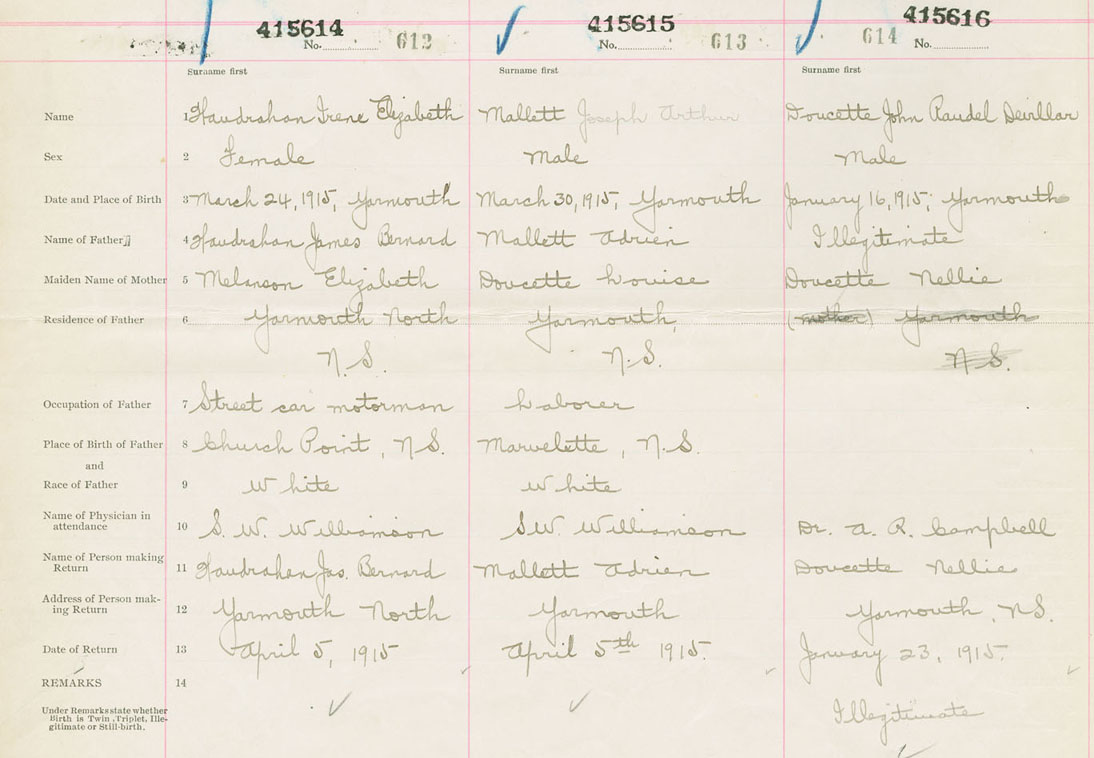 415614 415615 415616
No. 612 No. 613 614 No.
Surname first Surname first Surname first
Name 1 Haudrahan Irene Elizabeth Mallett Joseph Arthur Doucette John Raudel Devillar
Sex 2 Female Male Male
Date and Place of Birth 3 March 24, 1915, Yarmouth March 30, 1915, Yarmouth January 16, 1915, Yarmouth
Name of Father 4 Haudrahan James Bernard Mallett Adrien Illegitimate
Maiden Name of Mother 5 Melanson Elizabeth Doucette Louise Doucette Nellie
Residence of Father 6 Yarmouth North Yarmouth, (mother) Yarmouth
N.S. N.S. N.S.
Occupation of Father 7 Street car motorman Laborer
Place of Birth of Father 8 Church Point, N.S. Marvelette, N.S.
and
Race of Father 9 White White
Name of Physician in
attendance 10 S. W. Williamson S.W. Williamson Dr. A. R. Campbell
Name of Person making
Return 11 Haudrahan Jas. Bernard Mallett Adrien Doucette Nellie
Address of Person mak-
ing Return 12 Yarmouth North Yarmouth Yarmouth, N.S.
Date of Return 13 April 5, 1915 April 5th 1915. January 23, 1915.
REMARKS 14
Under Remarks state whether
Birth is Twin, Triplet, Ille-
gitimate or Still-birth. Illegitimate